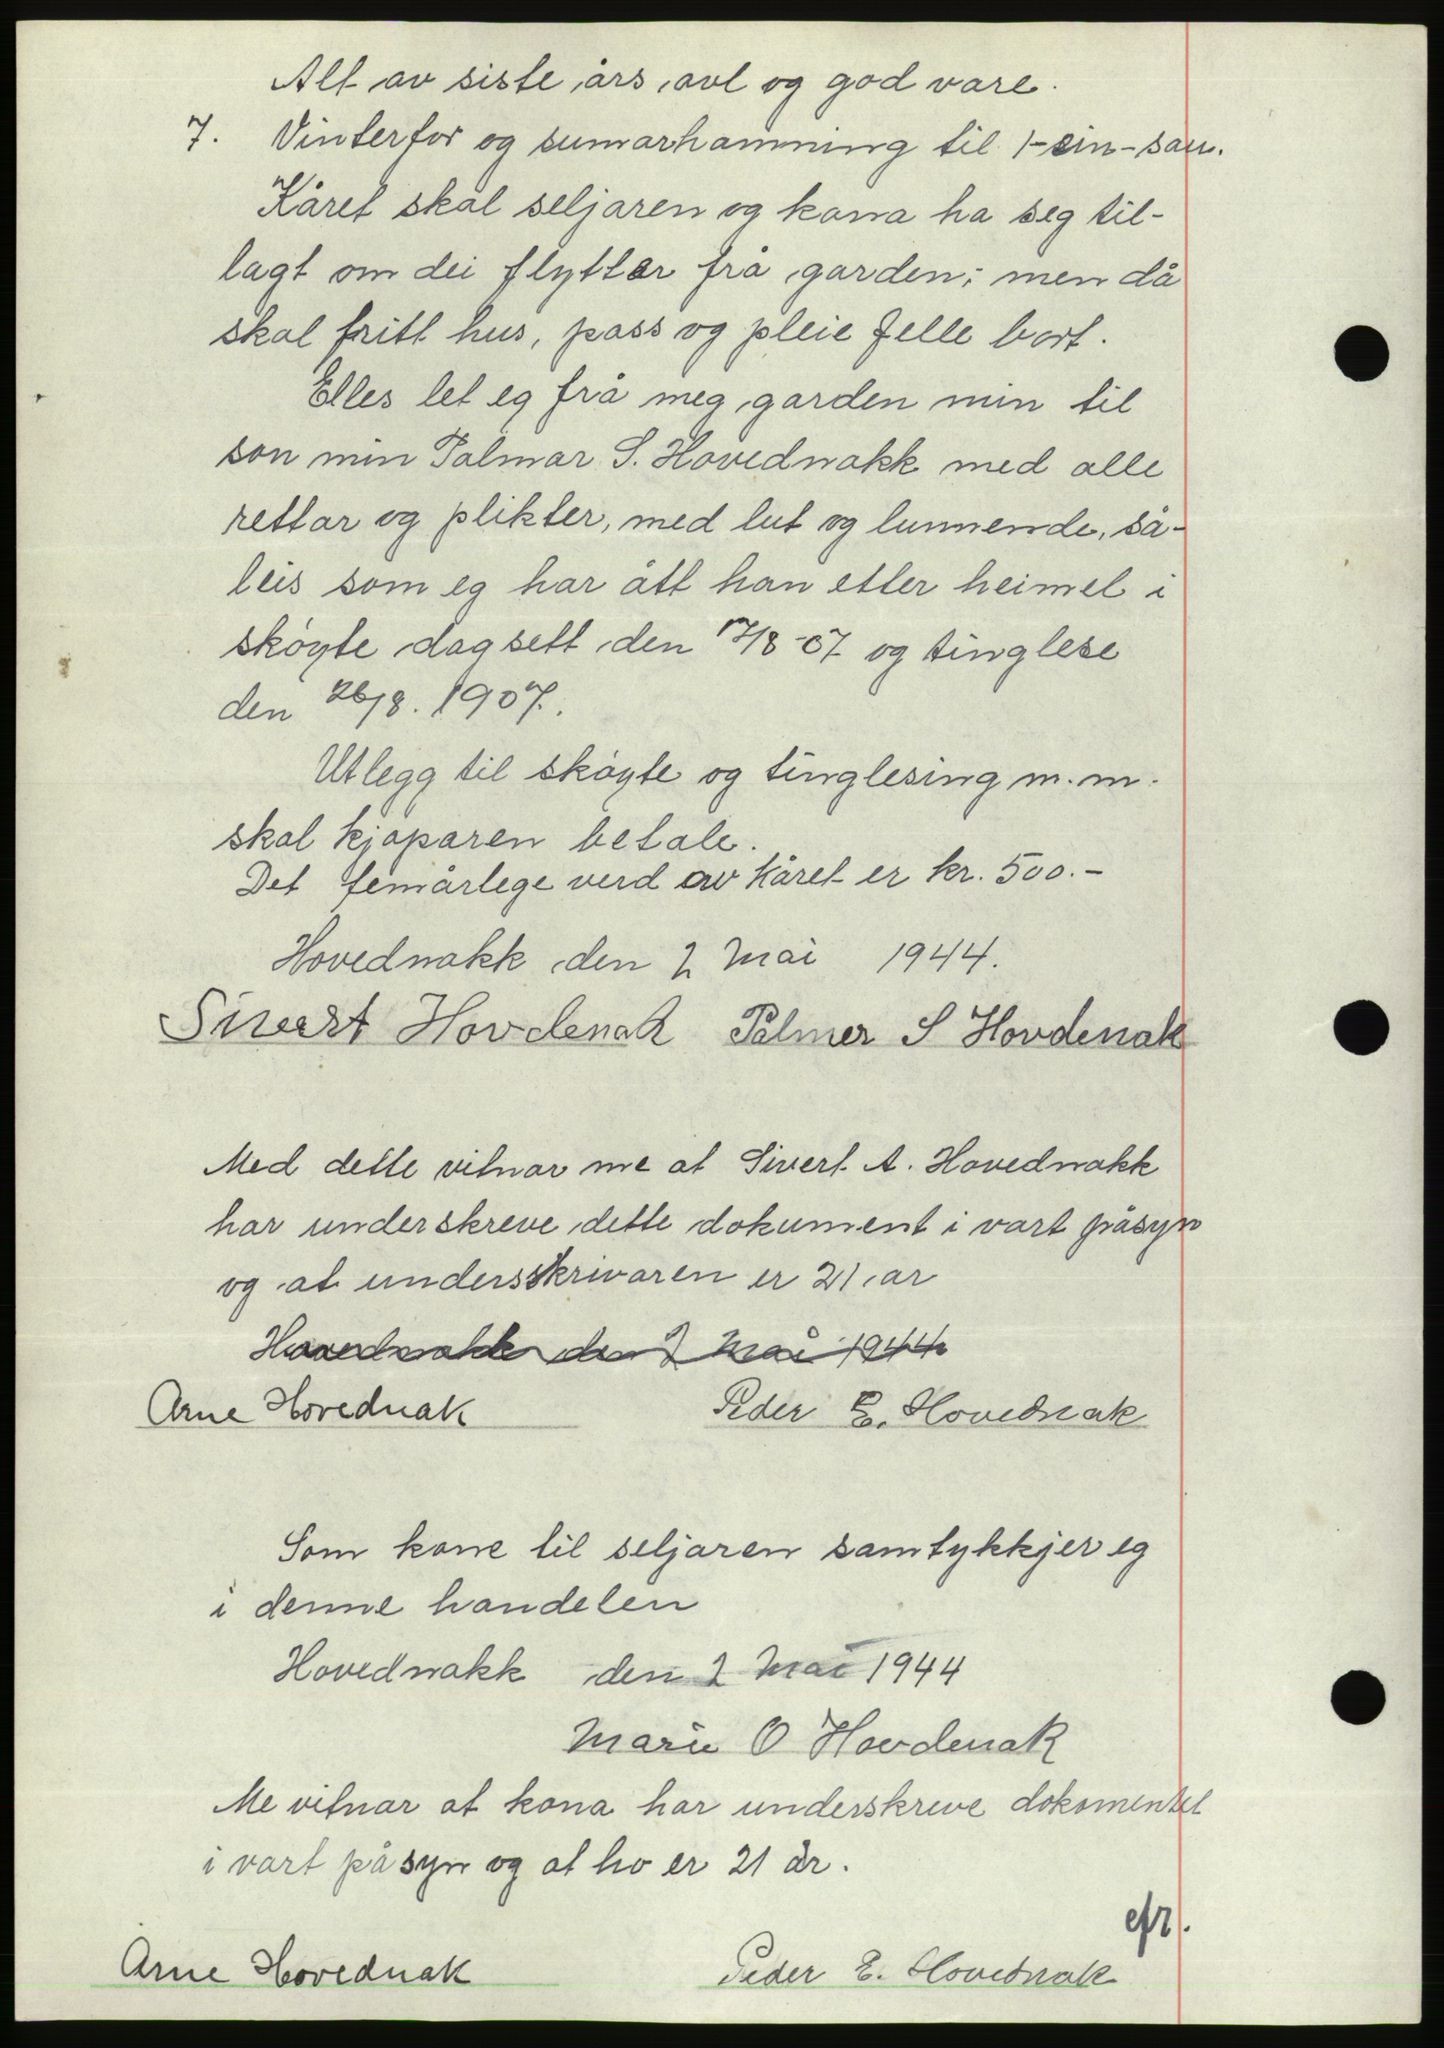 Alt av siste års avl og god vare.
7. Vinterfor og sumarhamning til 1-ein-sau.
Kåret skal seljaren og kona ha seg til-
lagt om dei flytter frå garden; men då
skal fritt hus, pass og pleie felle bort.
Elles let eg frå meg garden min til
son min Palmar S. Hovednakk med alle
rettar og plikter, med lut og lunnende, så-
leis som eg har ått han etter heimel i
skøyte dagsett den 17/8-07 og tinglese
den 26/8. 1907.
Utlegg til skøyte og tinglesing m.m.
skal kjøparen betale.
Det femårlege verd av kåret er kr. 500.-
Hovednakk den 2 Mai 1944.
Sivert Hovdenak Palmer S Hovdenak
Med dette vitnar me at Sivert A. Hovednakk
har underskreve dette dokument i vart påsyn
og at undersskrivaren er 21 ar
Hovednakk den 2 Mai 1944
Arne Hovednak Peder E. Hovednak
Som kone til seljaren samtykkjer eg
i denne handelen
Hovednakk den 2 Mai 1944
Marie O Hovdenak
Me vitnar at kona har underskreve dokomentet
i vart påsyn og at ho er 21 år.
efr.
Arne Hovednak Peder E. Hovednak